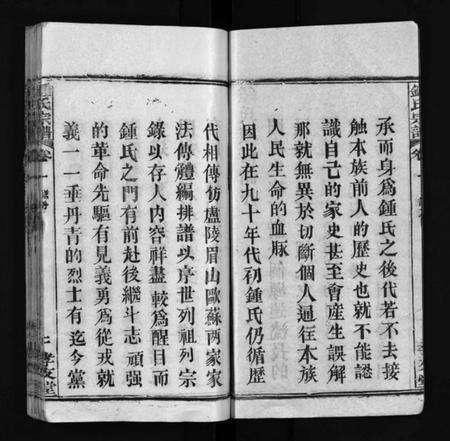 鍾氏宗譜
卷一
承而身爲鍾氏之後代若不去接
觸本族前人的歷史也就不能認
識自己的家史甚至會產生誤解
那就無異於切斷個人通往本族
人民生命的血脈
因此在九十年代初鍾氏仍循歷
代相傳仿廬陵眉山歐蘇兩家家
法傳體編排譜以序世列祖列宗
錄以存人內容祥盡較爲醒目而
鍾氏之門有前赴後繼斗志頑强
的革命先驅有見義勇爲從戎就
義一一垂丹青的烈士有迄今黨
氏宗譜
卷一
孝友堂